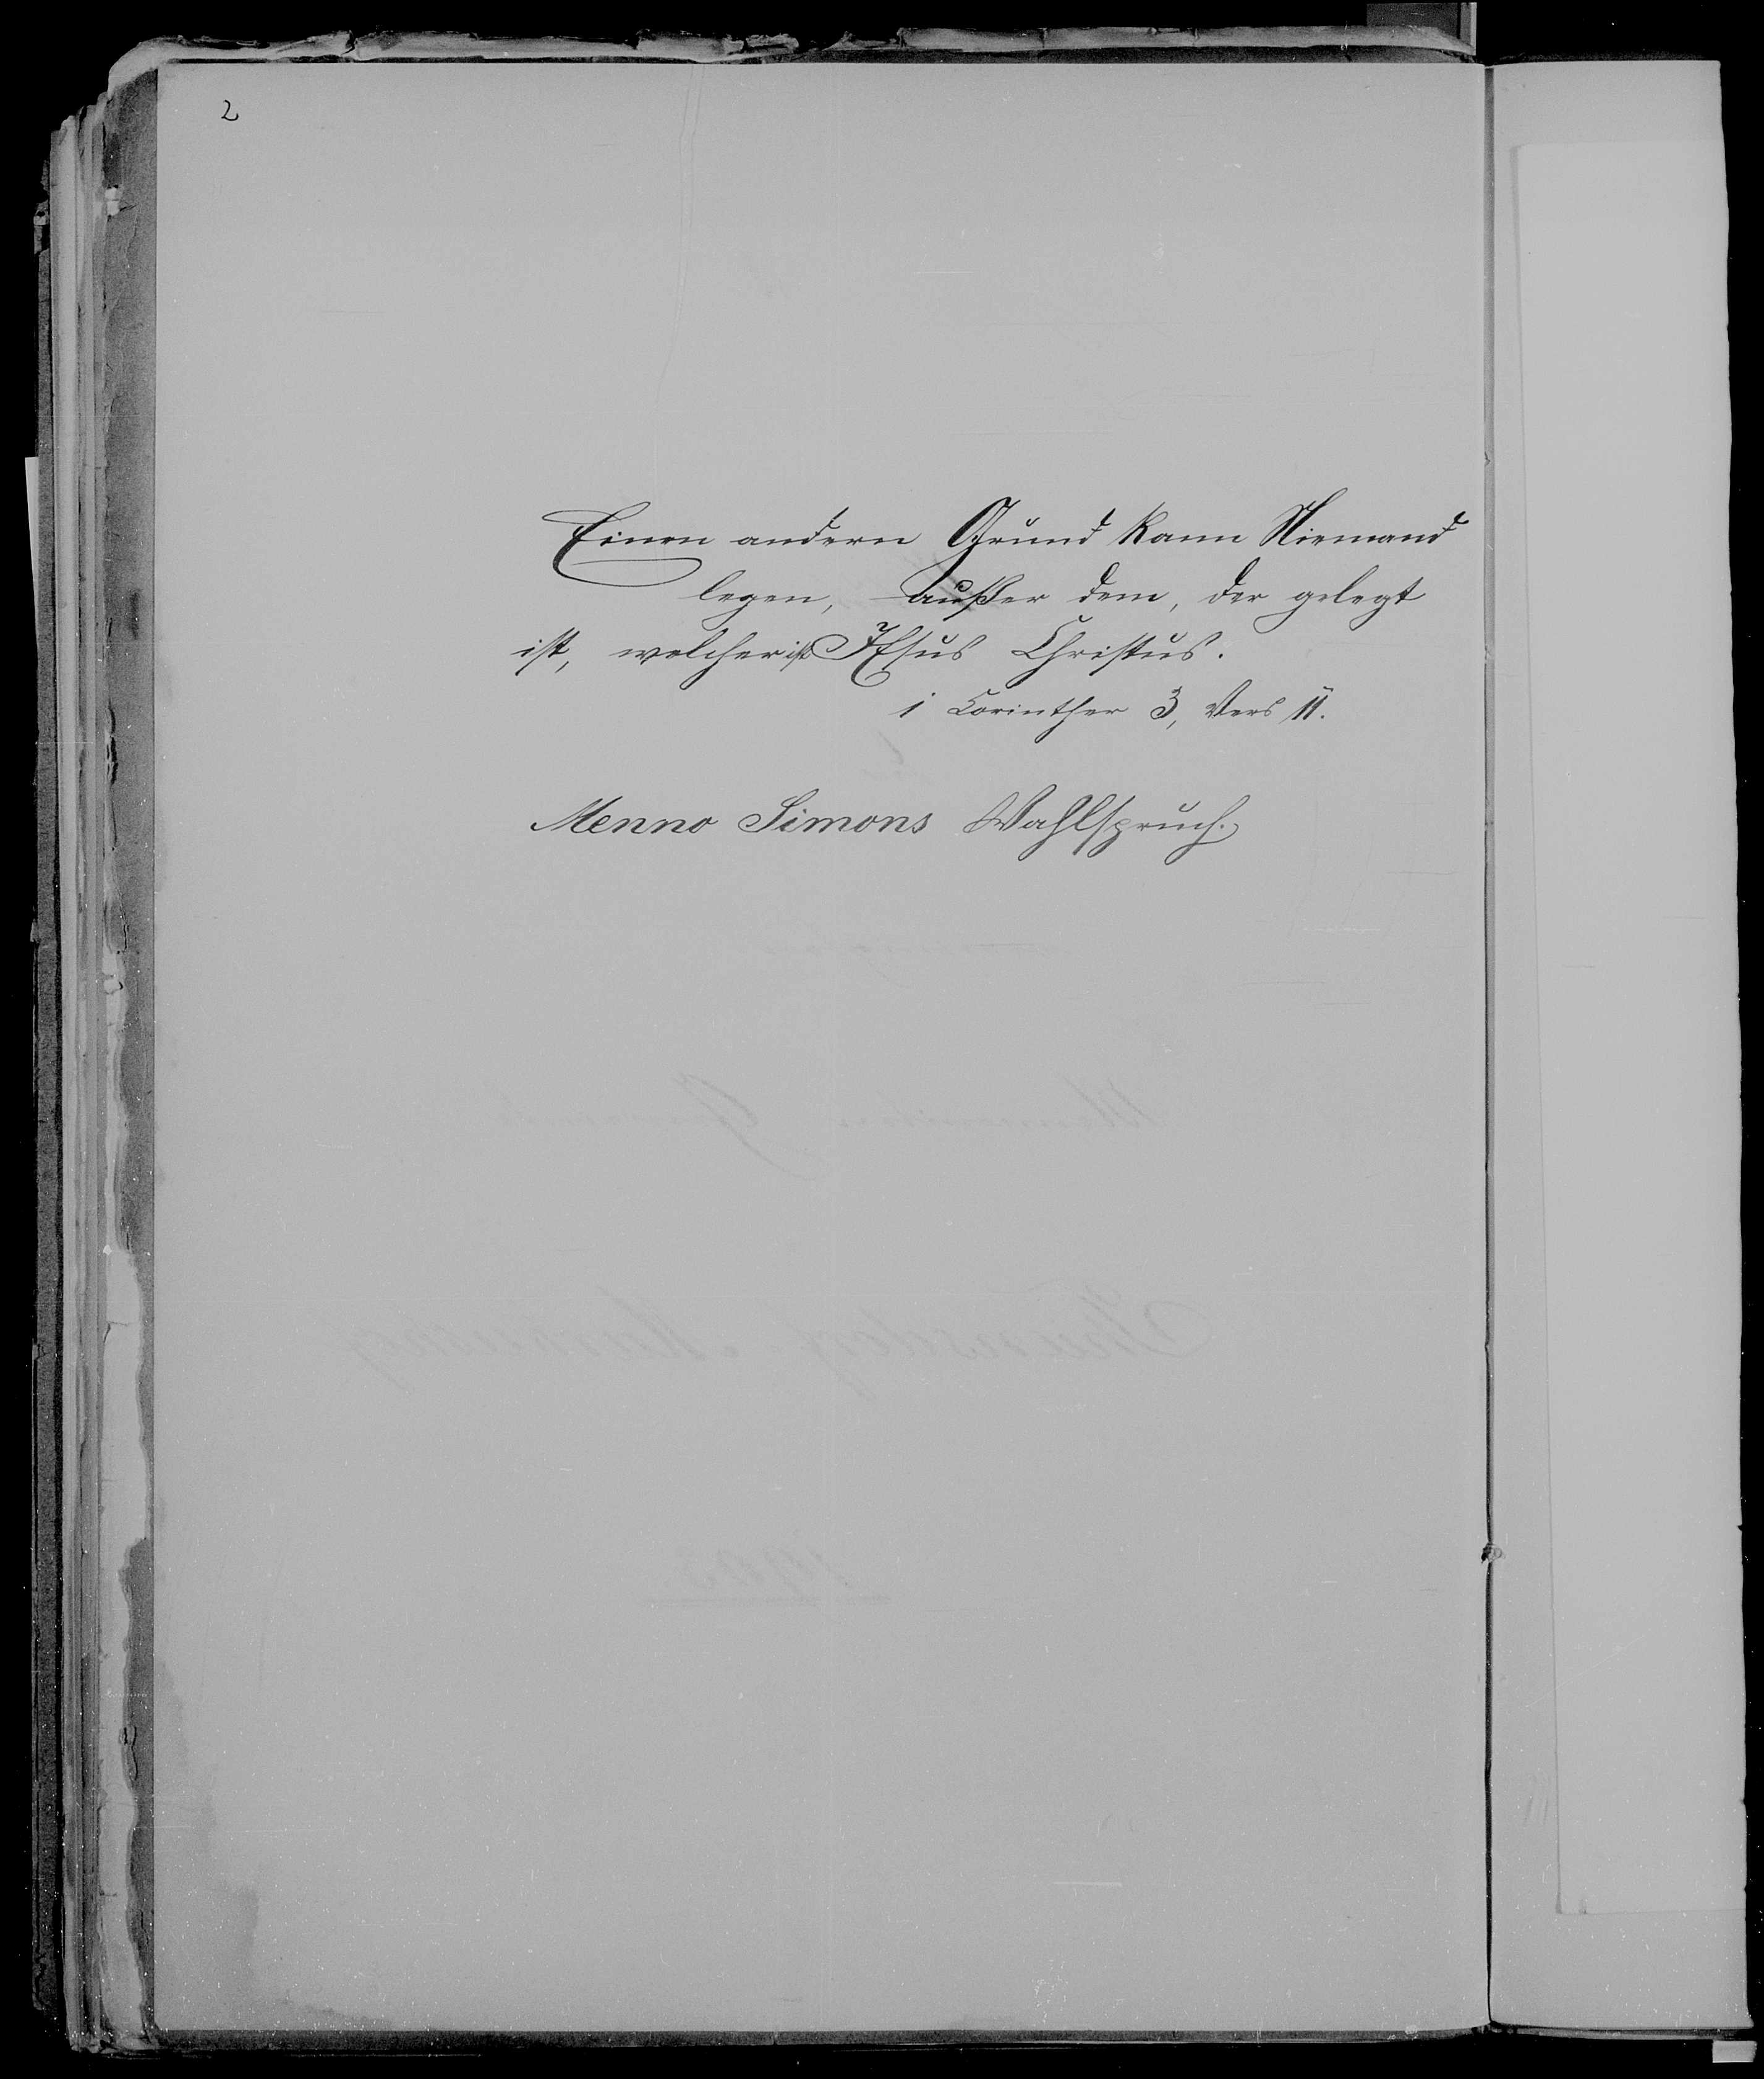 2
Einen andern Grund kann Niemand
legen, außer dem, der gelegt
ist, welcher ist JEsus Christus.
1 Corinther 3, Vers 11.
Menno Simons Wahlspruch.